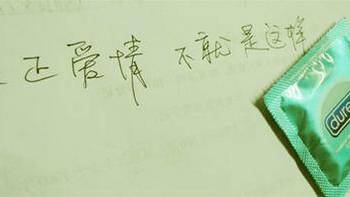 正爱情 不就是这样
dure